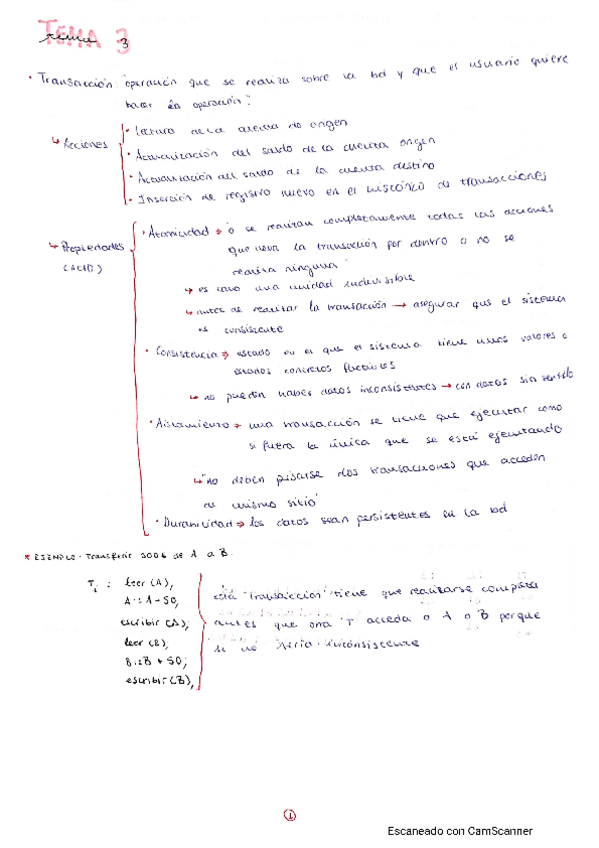 TEMA 3
tema 3
• Transacción "operación que se realiza sobre la bd y que el usuario quiere
hacer en operación".
↳ Acciones
• Lectura de la cuenta de origen
• Actualización del saldo de la cuenta origen
• Actualización del saldo de la cuenta destino
• Inserción de registro nuevo en el histórico de transacciones
↳ Propiedades
(ACID)
• Atomicidad → o se realizan completamente todas las acciones
que lleva la transacción por dentro o no se
realiza ninguna"
↳ es como una unidad indivisible
↳ antes de realizar la transacción → asegurar que el sistema
es consistente
• Consistencia → estado en el que el sistema tiene unos valores o
estados concretos factibles
↳ no pueden haber datos inconsistentes → con datos sin sentido
• Aislamiento → una transacción se tiene que ejecutar como
si fuera la única que se está ejecutando
↳ "no deben pisarse dos transacciones que acceden
al mismo sitio"
• Durabilidad → los datos sean persistentes en la bd
* EJEMPLO: Transferir 300€ de A a B
Ti : leer (A),
A := A - 50,
escribir (A),
leer (B),
B := B + 50;
escribir (B),
está "transacción" tiene que realizarse completa
antes que otra T acceda a A o B porque
si no sería inconsistente
1
Escaneado con CamScanner